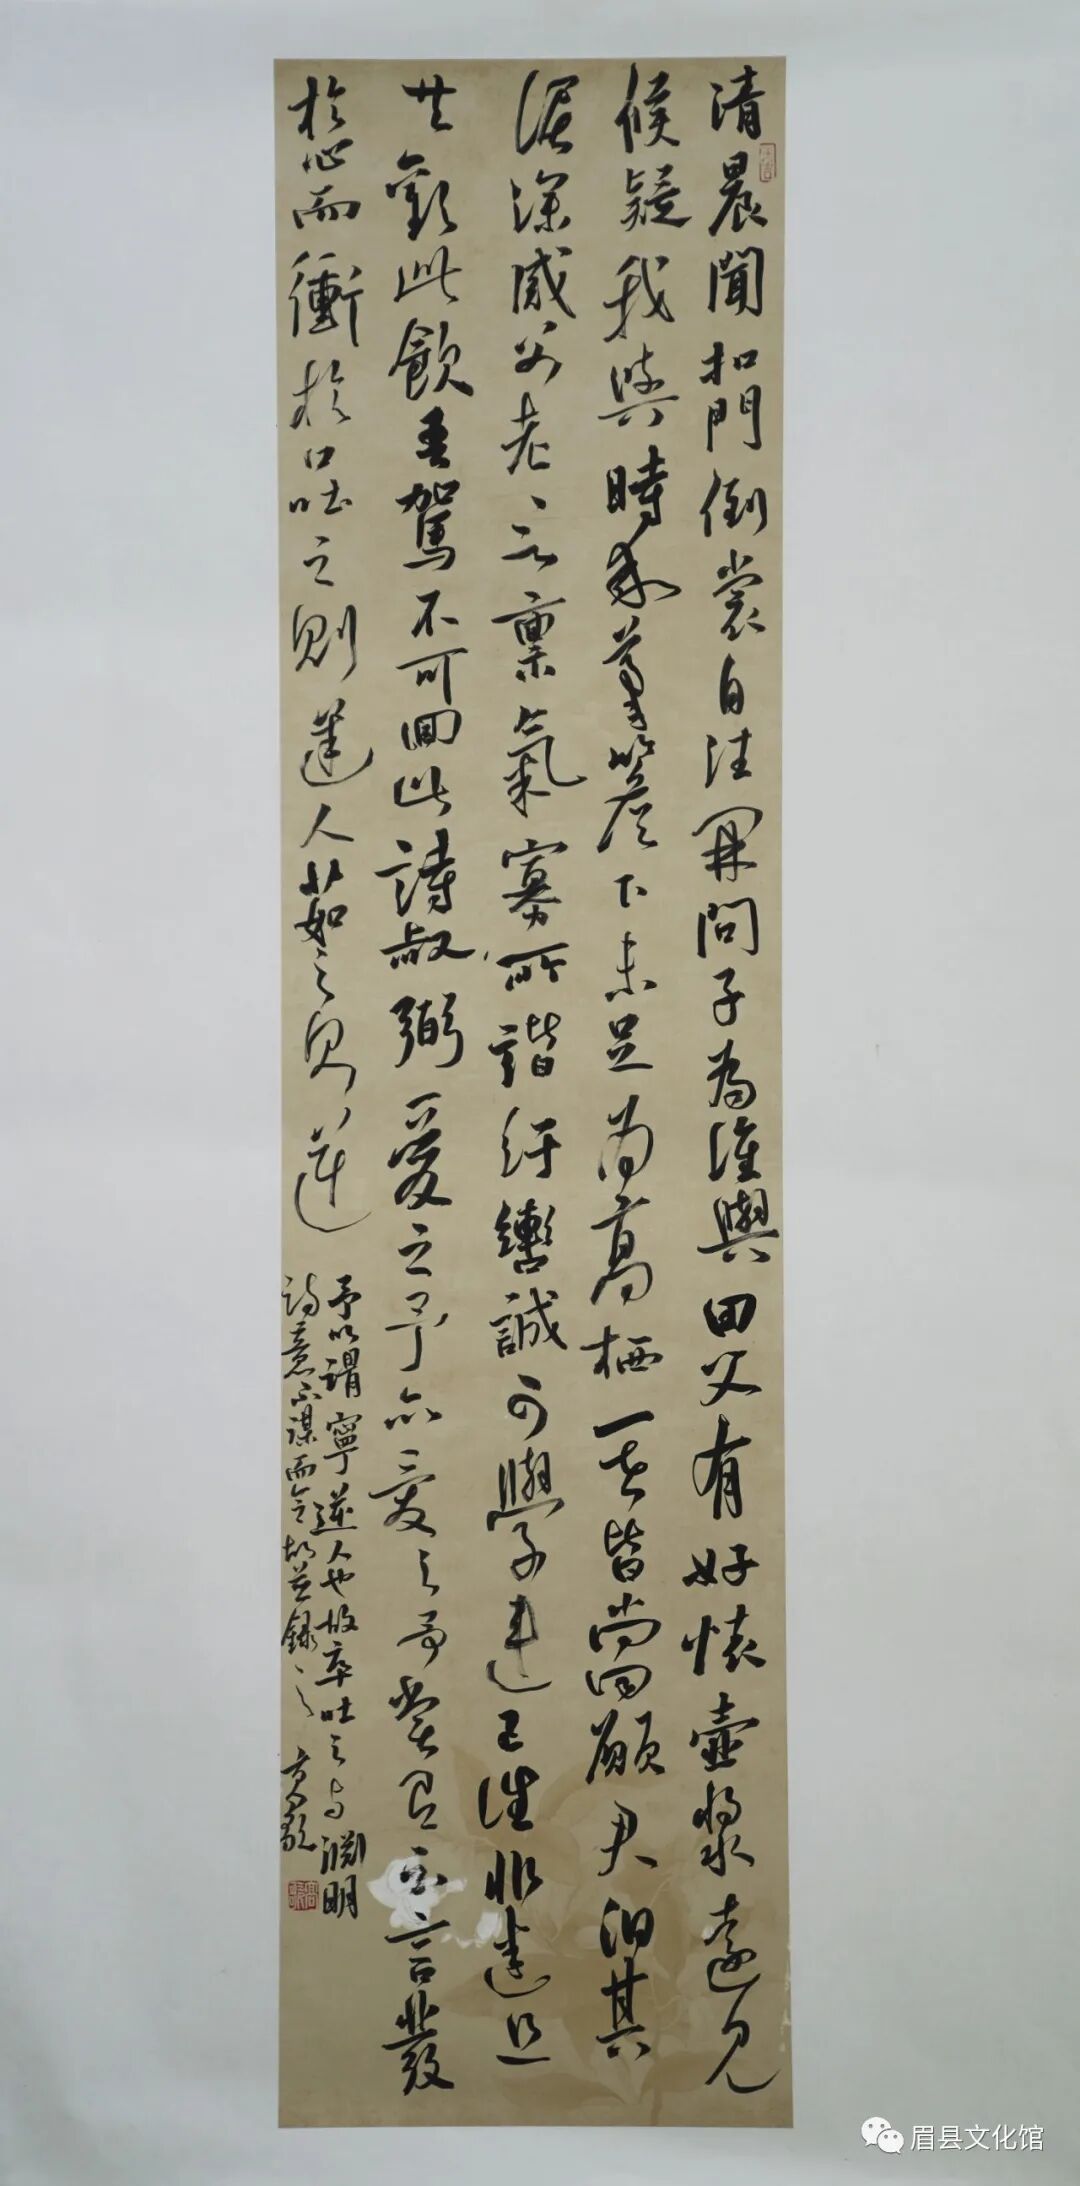 清晨聞扣門倒裳自往開問子為誰與田父有好懷壺漿遠見
候疑我與時乖茅簷下未足為高栖一世皆尚同願君汩其
泥深感父老言稟氣寡所諧紆轡誠可學違己詎非迷且
共歡此飲吾駕不可回此詩叔弼愛之予亦愛之予嘗有云言發
於心而衝於口吐之則逆人茹之則逆
予以謂寧逆人也故卒吐之與淵明
詩意不謀而合故並錄之
眉县文化馆